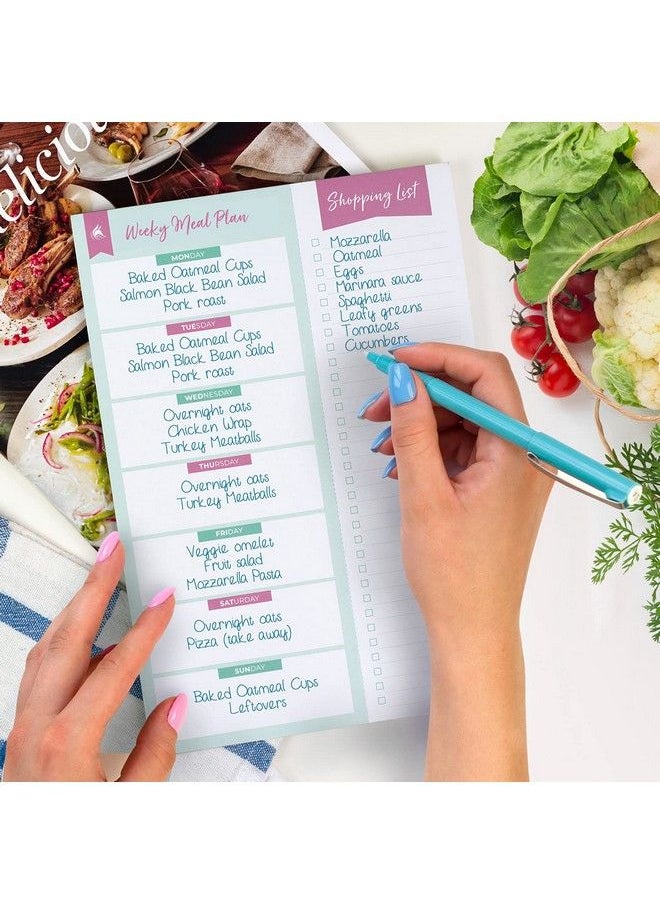 elicio
Weeky Meal Plan
MONDAY
Baked Oatmeal Cups
Salmon Black Bean Salad
Pork roast
TUESDAY
Baked Oatmeal Cups
Salmon Black Bean Salad
Pork roast
WEDNESDAY
Overnight oats
Chicken Wrap
Turkey Meatballs
THURSDAY
Overnight oats
Turkey Meatballs
FRIDAY
Veggie omelet
Fruit salad
Mozzarella Pasta
SATURDAY
Overnight oats
Pizza (take away)
SUNDAY
Baked Oatmeal Cups
Leftovers
Shopping List
Mozzarella
Oatmeal
Eggs
Marinara sauce
Spaghetti
Leafy greens
Tomatoes
Cucumbers